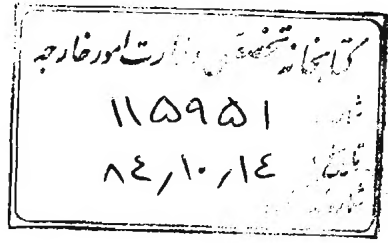 کتابخانه تخصصی وزارت امور خارجه
۱۱۵۹۵۱
تاریخ ۸۴/۱۰/۱۴